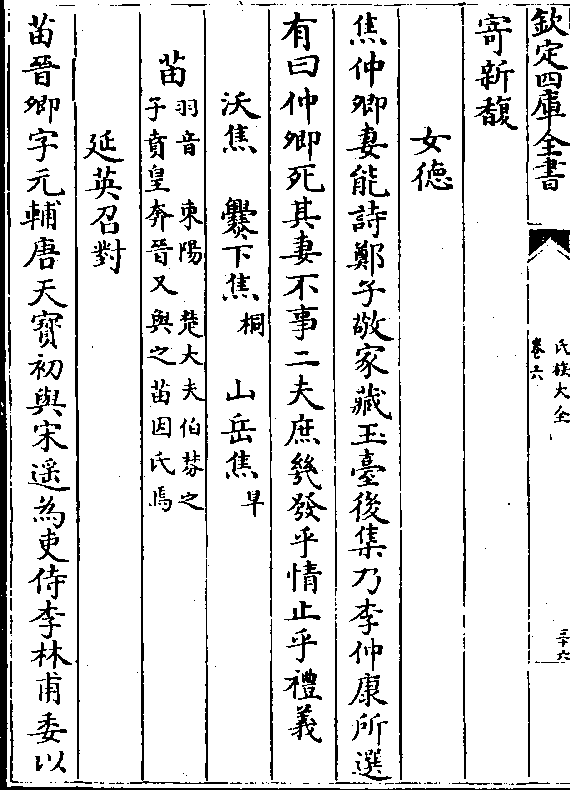 欽定四庫全書
氏族大全
卷六
三十六
寄新馥
女德
焦仲卿妻能詩鄭子敬家藏玉臺後集乃李仲康所選
有曰仲卿死其妻不事二夫庶幾發乎情止乎禮義
沃焦 爨下焦桐 山岳焦旱
苗羽音 東陽 楚大夫伯棼之
子賁皇奔晉又與之苗因氏焉
延英召對
苗晉卿字元輔唐天寶初與宋遥為吏侍李林甫委以